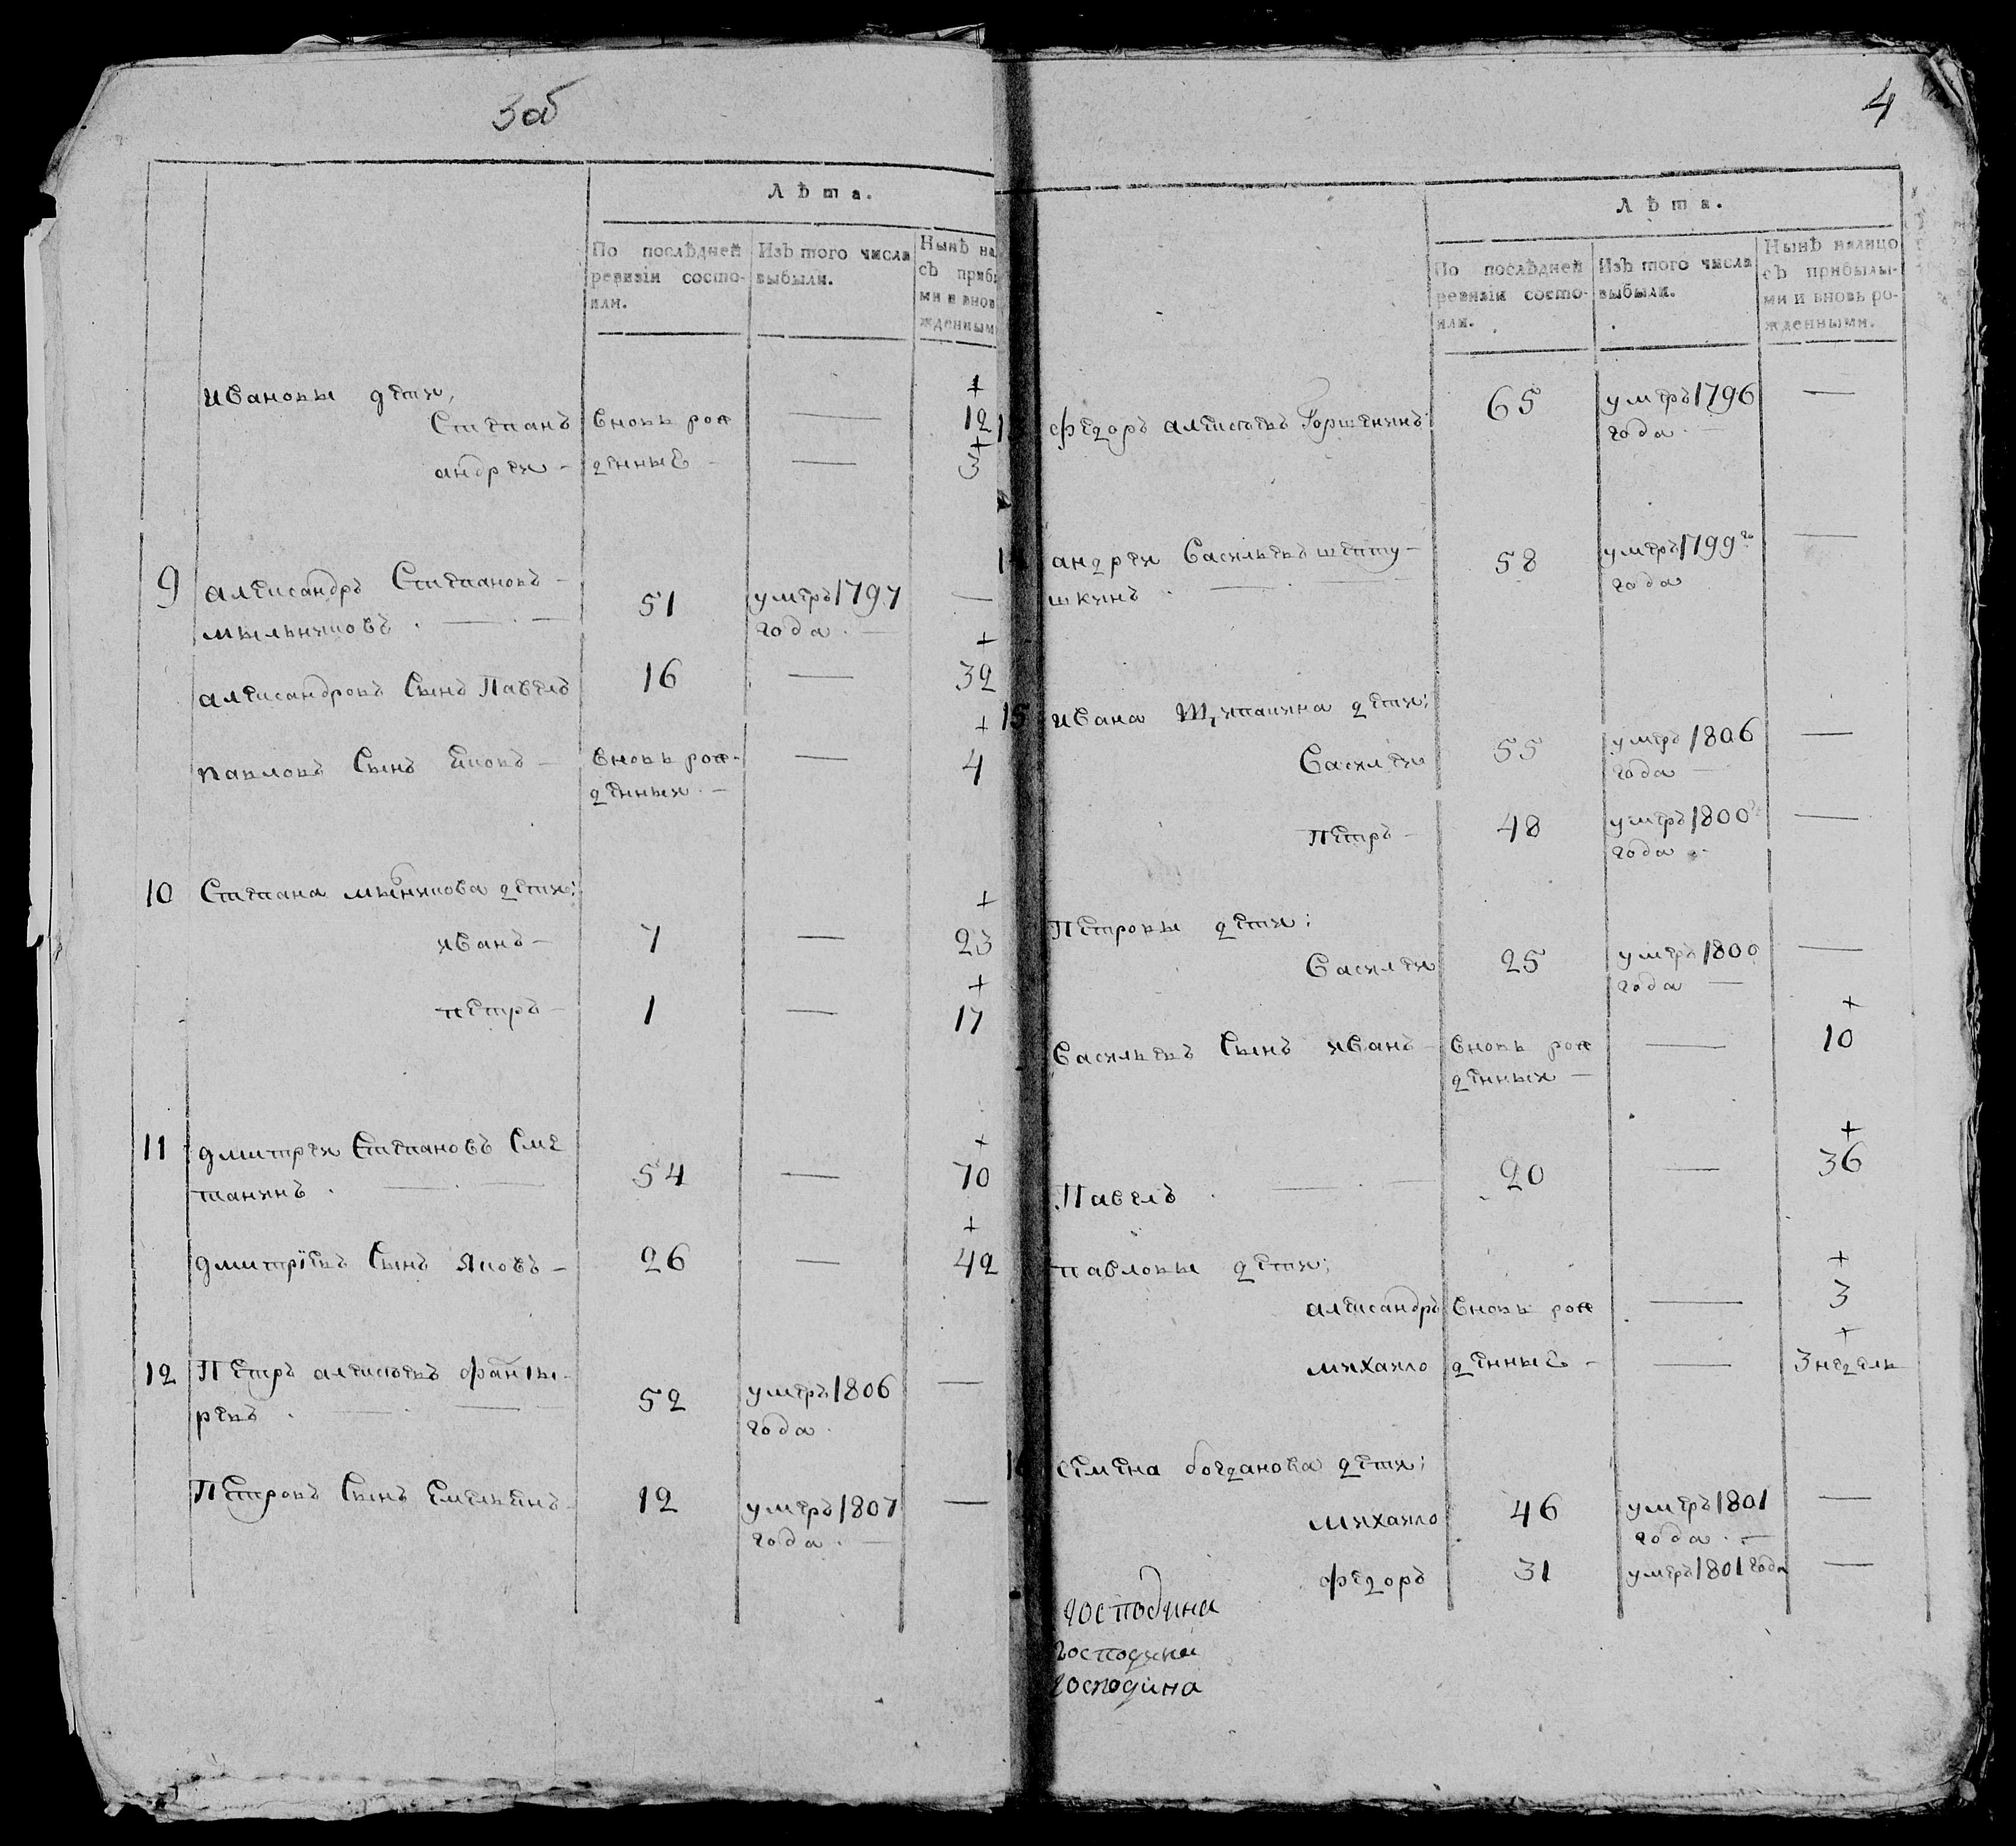 3об
Лѣта.
По послѣдней Изъ того числа Нынѣ на
ревизіи состо- выбыли. съ приб
или. ми и внов
жденным
Ивановы дети,
Степанъ вновь рож — 12
андреи – денные – — 3
9 александръ Степановъ –
мыльниковъ . — . — 51 умеръ 1797 года . — —
александровъ Сынъ Павелъ 16 — 32
павловъ Сынъ Яковъ – вновь рож- — 4
денныи . –
10 Степана мыльникова дети:
иванъ – 7 — 23
петръ – 1 — 17
11 дмитреи Степановъ Сме
танинъ . — . — 54 — 70
дмитріевъ Сынъ Яковъ – 26 — 42
12 Петръ алексѣевъ
ревъ . — . — 52 умеръ 1806 —
года .
Петровъ Сынъ Емельенъ – 12 умеръ 1807 —
года . —
4
Лѣта.
По послѣдней Изъ того числа Нынѣ налицо
ревизіи состо- выбыли. съ прибылы-
или. ми и вновь ро-
жденными.
федоръ алексѣевъ Горшенинъ 65 умеръ 1796 —
года . —
андреи Васильевъ шепту- 58 умеръ 1799го —
шкинъ . — — года
15 Ивана Щипанина дети:
Василеи 55 умеръ 1806 —
года —
Петръ – 48 умеръ 1800 —
года . –
Петровы дети:
Василеи 25 умеръ 1800 —
года —
Васильевъ Сынъ иванъ – вновь рож — 10
денныи —
Павелъ . — . — 20 — 36
павловы дети:
александръ вновь рож — 3
михаило денные – — 3 недель
Семена богданова дети:
михаило 46 умеръ 1801 —
года . —
федоръ 31 умеръ 1801 года —
господина
господина
господина